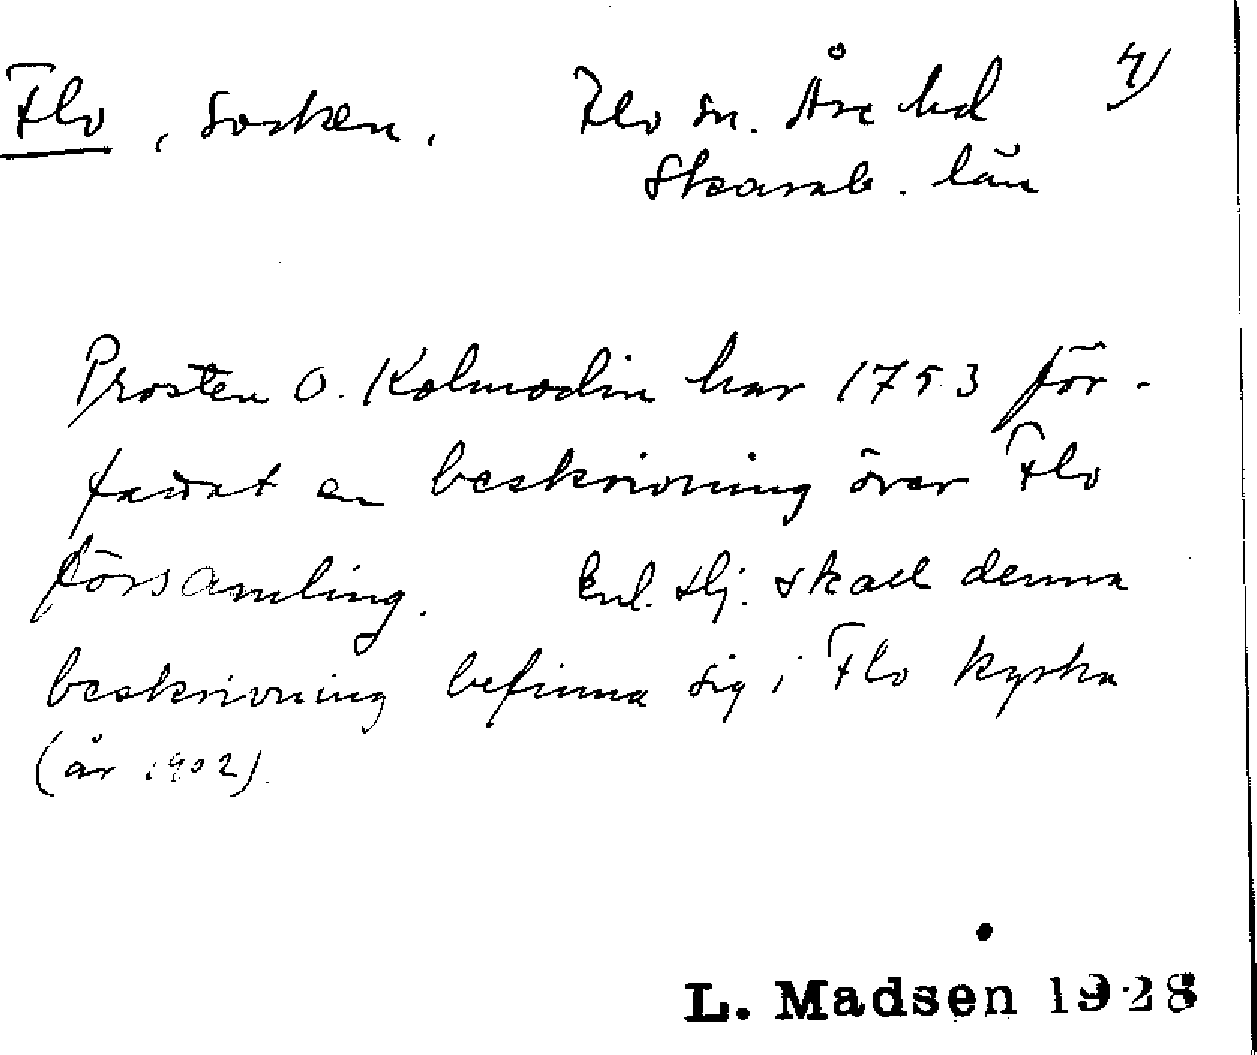 Flo, socken. Flo sn. Åse hd 4)
Skarab. län
Prosten O. Kolmodin har 1753 för-
fattat en beskrivning över Flo
församling. Enl. Hj. skall denna
beskrivning befinna sig i Flo kyrka
(år 1902).
L. Madsen 1928